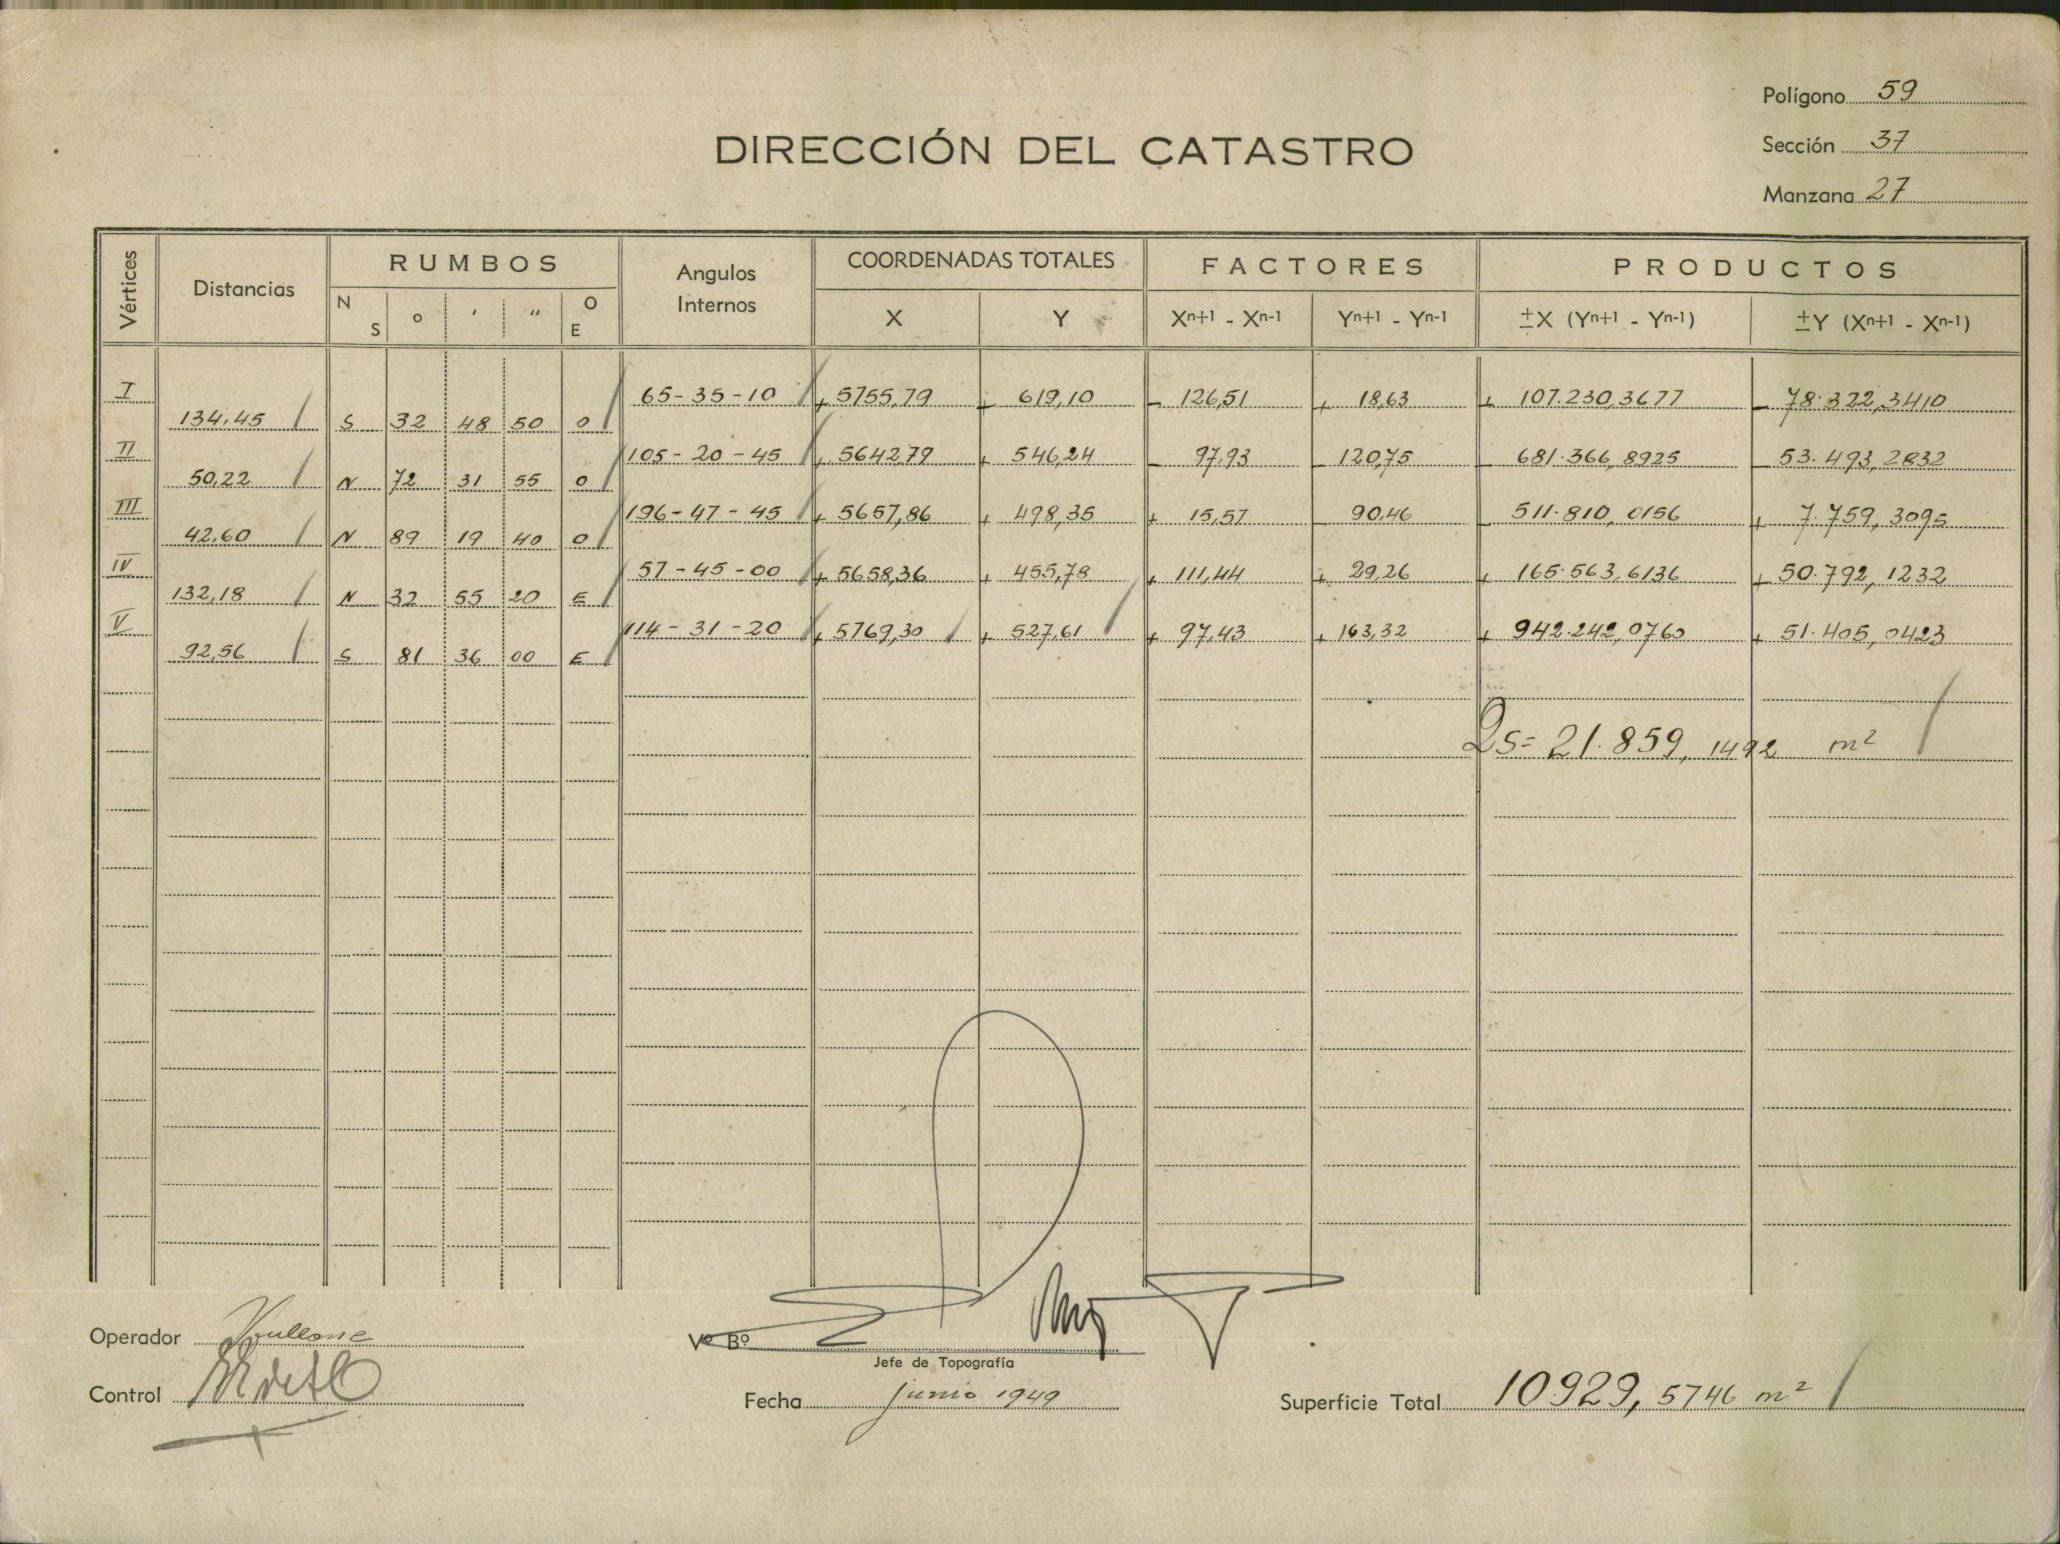 Polígono 59
DIRECCIÓN DEL CATASTRO
Sección 37
Manzana 27
Vértices Distancias RUMBOS Angulos Internos COORDENADAS TOTALES FACTORES PRODUCTOS
N S ° ' " O E X Y Xn+1 - Xn-1 Yn+1 - Yn-1 ±X (Yn+1 - Yn-1) ±Y (Xn+1 - Xn-1)
I 65-35-10 + 5755,79 + 619,10 - 126,51 + 18,63 + 107.230,3677 - 78.322,3410
134,45 S 32 48 50 O
II 105-20-45 + 5642,79 + 546,24 - 97,93 - 120,75 - 681.366,8925 - 53.493,2832
50,22 N 72 31 55 O
III 196-47-45 + 5657,86 + 498,35 + 15,57 - 90,46 - 511.810,0156 + 7.759,3095
42,60 N 89 19 40 O
IV 57-45-00 + 5658,36 + 455,78 + 111,44 + 29,26 + 165.563,6136 + 50.792,1232
132,18 N 32 55 20 E
V 114-31-20 + 5769,30 + 527,61 + 97,43 + 163,32 + 942.242,0760 + 51.405,0423
92,56 S 81 36 00 E
2s= 21.859,1492 m²
Operador
Vº Bº
Jefe de Topografía
Control
Fecha junio 1949
Superficie Total 10929,5746 m²